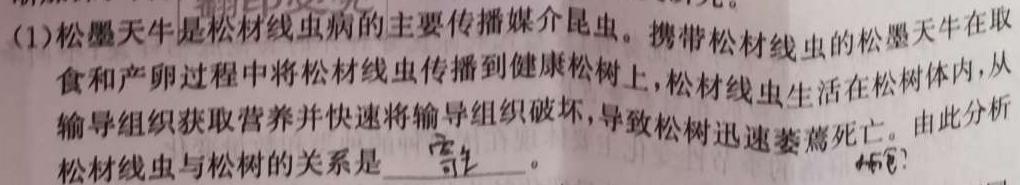 (1)松墨天牛是松材线虫病的主要传播媒介昆虫。携带松材线虫的松墨天牛在取
食和产卵过程中将松材线虫传播到健康松树上,松材线虫生活在松树体内,从
输导组织获取营养并快速将输导组织破坏,导致松树迅速萎蔫死亡。由此分析
松材线虫与松树的关系是 寄生 。
捕食?